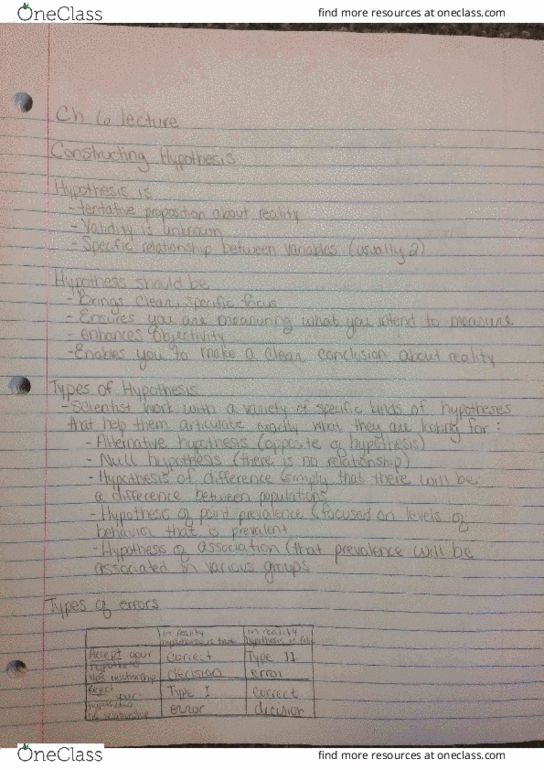 OneClass find more resources at oneclass.com
Ch 6 lecture
Constructing Hypothesis
Hypothesis is
- tentative proposition about reality
- Validity is unknown
- Specific relationship between variables (usually 2)
Hypothesis should be
- Brings clear, specific focus
- Ensures you are measuring what you intend to measure
- enhances objectivity
- Enables you to make a clear conclusion about reality
Types of Hypothesis
- Scientist work with a variety of specific kinds of hypotheses
that help them articulate exactly what they are looking for :
- Alternative hypothesis (opposite of hypothesis)
- Null hypothesis (there is no relationship)
- Hypothesis of difference (simply that there will be
a difference between populations
- Hypothesis of point prevalence (focused on levels of
behavior that is prevalent
- Hypothesis of association (that prevalence will be
associated in various groups
Types of errors
In reality In reality
hypothesis is true hypothesis is
Accept your correct Type II
hypothesis decision error
relationship
Reject your Type I correct
hypothesis error decision
relationship
OneClass find more resources at oneclass.com